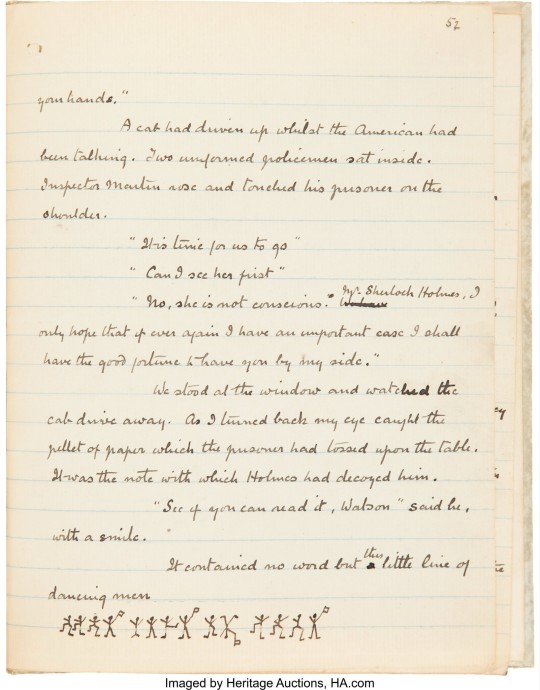 52
your hands."
A cab had driven up whilst the American had
been talking. Two uniformed policemen sat inside.
Inspector Martin rose and touched his prisoner on the
shoulder.
"It is time for us to go"
"Can I see her first"
"No, she is not conscious." Mr. Sherlock Holmes, I
only hope that if ever again I have an important case I shall
have the good fortune to have you by my side."
We stood at the window and watched the
cab drive away. As I turned back my eye caught the
pellet of paper which the prisoner had tossed upon the table.
It was the note with which Holmes had decoyed him.
"See if you can read it, Watson" said he,
with a smile.
It contained no word but this little line of
dancing men
Imaged by Heritage Auctions, HA.com